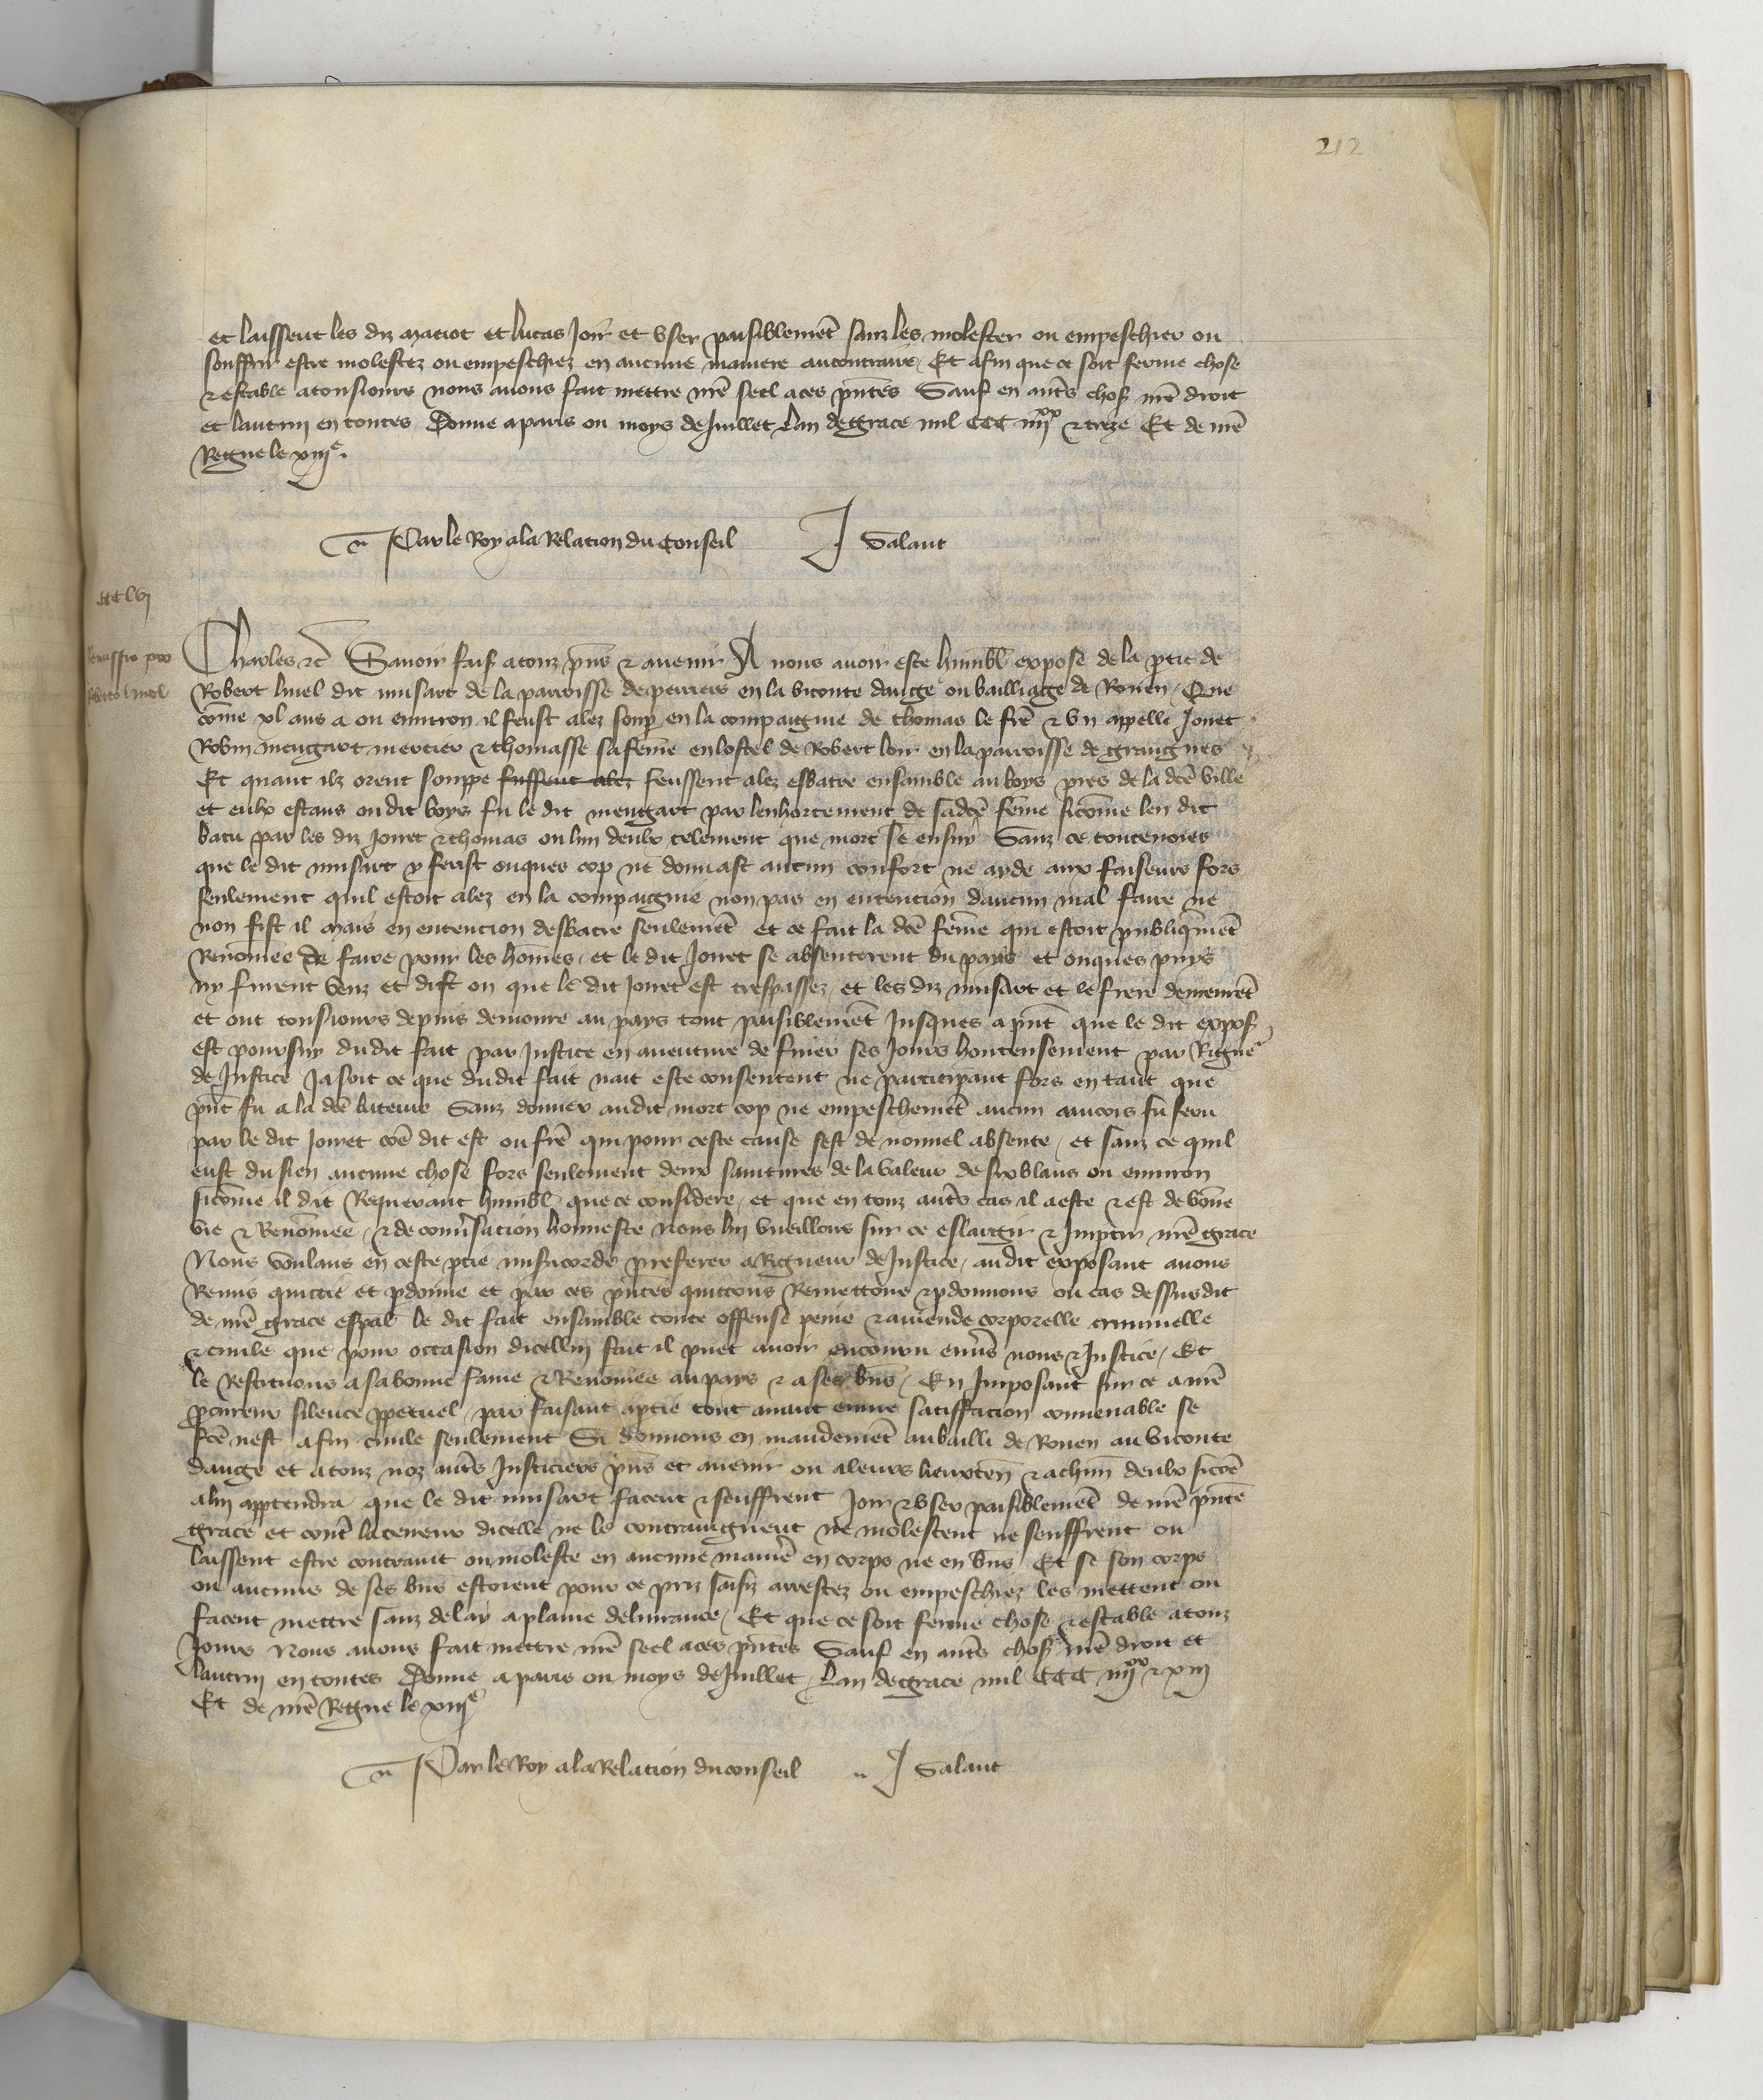 212
et laissent les diz maciot et lucas Joir et vser paisiblemēt sanz les molester ou empeschier ou
souffrir estre molestez ou empeschiez en aucune maniere au contraire / Et afin que ce soit ferme chose
& estable a tousiours nous auons fait mettre nrē seel a ces pñtes Sauf en autˢ chosˢ nrē droit
et lautruy en toutes Donne a paris ou moys de Juillet Lan de grace mil CCC iiijˣˣ & treze Et de nrē
Regne le xiijᵉ.
Par le Roy a la Relacion du Conseil J Salaut
CCClvj
Remissio pro
Roberto linel
Charles &c Sauoir faisˢ a touz pñs & auenir A nous auoir este humblˡ expose de la ptie de
Robert linel dit musart de la parroisse de perriers en la viconte dauge ou bailliage de Rouen / Que
cōme xl ans a ou enuiron il feust alez soupˢ en la compaignie de thomas le frē & vn appelle Jouet
Robin mengart mercier & thomasse sa fēme en lostel de Robert loir en la parroisse de grangnes
Et quant ilz orent souppe fussent alez feussent alez esbatre ensamble au boys pres de la dcē ville
et eulx estans ou dit boys fu le dit mengart par lenhortement de sa dcē fēme sicōme len dit
batu par les diz Jouet & thomas ou lun deulx telement que mort se ensuy Sanz ce toutesuoies
que le dit musart y ferist onques cop ne donnast aucun confort ne ayde aux faiseurs fors
seulement quil estoit alez en la compaignie non pas en entencion daucun mal faire ne
non fist il mais en entencion desbatre seulemēt et ce fait la dcē fēme qui estoit publiqmēt
Renōmee de faire pour les hōmes / et le dit Jouet se absenterent du pays et onques puys
ny furent veuz et dist on que le dit Jouet est trespassez / et les diz musart et le frere demeurēt
et ont tousiours depuis demoure au pays tout paisiblemēt Jusques a pñt que le dit exposˢ
est poursuy du dit fait par Justice en auenture de finer ses Jours honteusement par Riguʳ
de Justice Ja soit ce que du dit fait nait este consentent ne participant fors en tant que
pñt fu a la dcē bateure Sanz donner au dit mort cop ne empeschemēt aucun aincois fu feru
par le dit Jouet cōe dit est ou frē qui pour ceste cause sest de nouuel absente / et sanz ce quil
eust du sien aucune chose fors seulement deux saintures de la valeur de six blans ou enuiron
sicōme il dit Requerant humblˡ que ce considere / et que en touz autˢ cas il a este & est de bōne
vie & Renōmee / & de conūsacion honneste nous luy vueillons sur ce eslargir & Impartir nrē grace
Nous voulans en ceste ptie misicorde preferer a Rigueur de Justice / au dit exposant auons
Remis quictie et pdonne et par ces pñtes quictons Remettons & pdonnons ou cas dessusdit
de nrē grace espāl le dit fait ensamble toute offense peine & amende corporelle criminelle
& ciuile que pour occasion dicellui fait il puet auoir encouru enūs nous & Justice / Et
le Restituons a sa bonne fame & Renōmee au pays & a ses bñs / En Imposant sur ce a nrē
pcureur silence ppetuel / par faisant a ptie tout auant euure satisffacion conuenable se
fcē nest a fin ciuile seulement Si donnons en mandemēt au bailli de Rouen au viconte
dauge et a touz noz autˢ Justiciers pñs et auenir ou a leurs lieuxteñ & a chūn deulx sicōe
a luy apptendra que le dit musart facent & seuffrent Joir & vser paisiblemēt de nrē pñte
grace et contˢ la teneur dicelle ne le contraingnent ne molestent ne seuffrent ou
laissent estre contraint ou moleste en aucune maniē en corps ne en bñs Et se son corps
ou aucuns de ses bñs estoient pour ce priz saisiz arrestez ou empeschiez les mettent ou
facent mettre sanz delay a plaine deliurance / Et que ce soit ferme chose & estable a touz
Jours Nous auons fait mettre nrē seel a ces pñtes Sauf en autˢ chosˢ nrē droit et
lautruy en toutes Donne a paris ou moys de Juillet / Lan de grace mil CCC iiijˣˣ & xiij
Et de nrē Regne le xiijᵉ
Par le Roy a la Relacion du conseil J Salaut